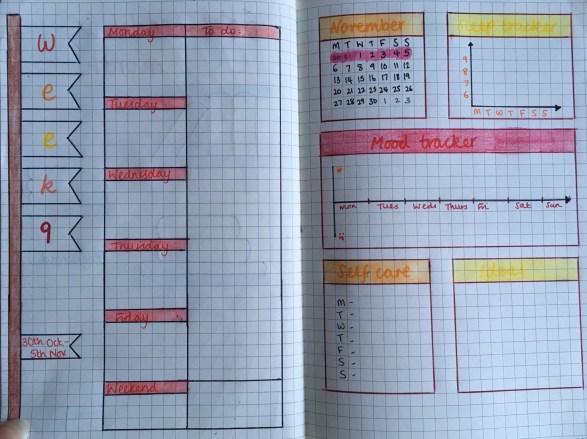 W
e
e
k
9
30th Oct -
5th Nov
Monday
To do:
Tuesday
Wednesday
Thursday
Friday
Weekend
November
M T W T F S S
1 2 3 4 5
6 7 8 9 10 11 12
13 14 15 16 17 18 19
20 21 22 23 24 25 26
27 28 29 30 1 2 3
tracker
9
8
7
6
M T W T F S S
Mood tracker
Mon Tues Weds Thurs Fri Sat Sun
Self care
M -
T -
W -
T -
F -
S -
S -